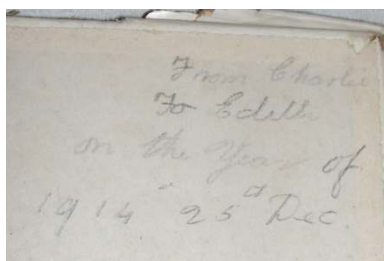 From Charlie
To Edith
on the Year of
1914 25 Dec